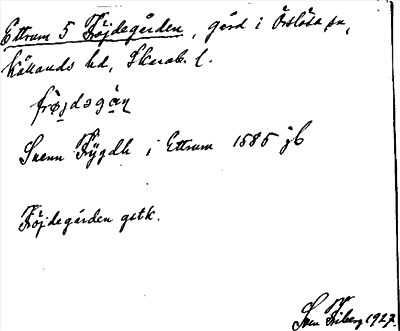 Ettrum 5 Fröjdegården, gård i Örslösa sn,
Kållands hd, Skarab. l.
frøjdəgån
Suenn Frygdh i Ettrum 1585 jb
Fröjdegården gstk.
Sven Friberg 1927.